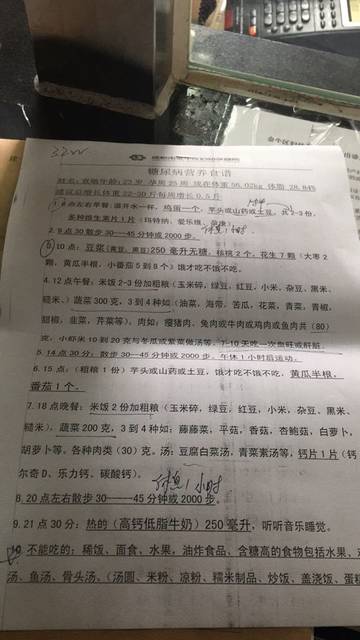 糖尿病营养食谱
年龄: 29岁 孕周 25周 现在体重 56.02kg 体脂 28.84%
建议总增长体重 22-30斤每周增长 0.5斤
1.8点左右早餐: 温开水一杯, 鸡蛋一个, 芋头或山药或土豆, 共2-3份,
多种维生素片1片 (玛特纳、爱乐维、
2.9点30散步30---45分钟或2000步。 休息1小时
10点: 豆浆(黄豆、黑豆) 250毫升无糖, 核桃2个, 花生7颗 (大枣2
颗, 黄瓜半根, 小番茄5到8个) 饿才吃不饿不吃.
4.12点午餐: 米饭2-3份加粗粮 (玉米碎, 绿豆, 红豆, 小米, 杂豆, 黑米,
糙米)、蔬菜300克, 3到4种如 (油菜, 海带, 苦瓜, 花菜, 青菜, 青椒,
甜椒, 韭菜, 芹菜等)。肉如: 瘦猪肉、兔肉或牛肉或鸡肉或鱼肉共 (80)
克, 小虾米10到20克与冬瓜或紫菜做汤等。7-10天吃一次血旺或肝脏.
5.14点30分: 散步30---45分钟或2000步. 午休1小时后运动.
6.15点: (粗粮1份) 芋头或山药或土豆, 饿才吃不饿不吃, 黄瓜半根,
番茄1个。
7.18点晚餐: 米饭2份加粗粮 (玉米碎, 绿豆, 红豆, 小米, 杂豆, 黑米,
糙米), 蔬菜200克, 3到4种如: 藤藤菜, 平菇, 香菇, 杏鲍菇, 白萝卜,
胡萝卜等。各种肉类 (30) 克。汤: 豆腐白菜汤, 青菜素汤等, 钙片1片(钙
尔奇D、乐力钙、碳酸钙)。 休息1小时
8.20点左右散步30---45分钟或2000步。
9.21点30分: 热的 (高钙低脂牛奶) 250毫升, 听听音乐睡觉。
不能吃的: 稀饭、面食、水果, 油炸食品、含糖高的食物包括水果、
汤、鱼汤、骨头汤、(汤圆、米粉、凉粉、糯米制品、炒饭、盖浇饭、蛋